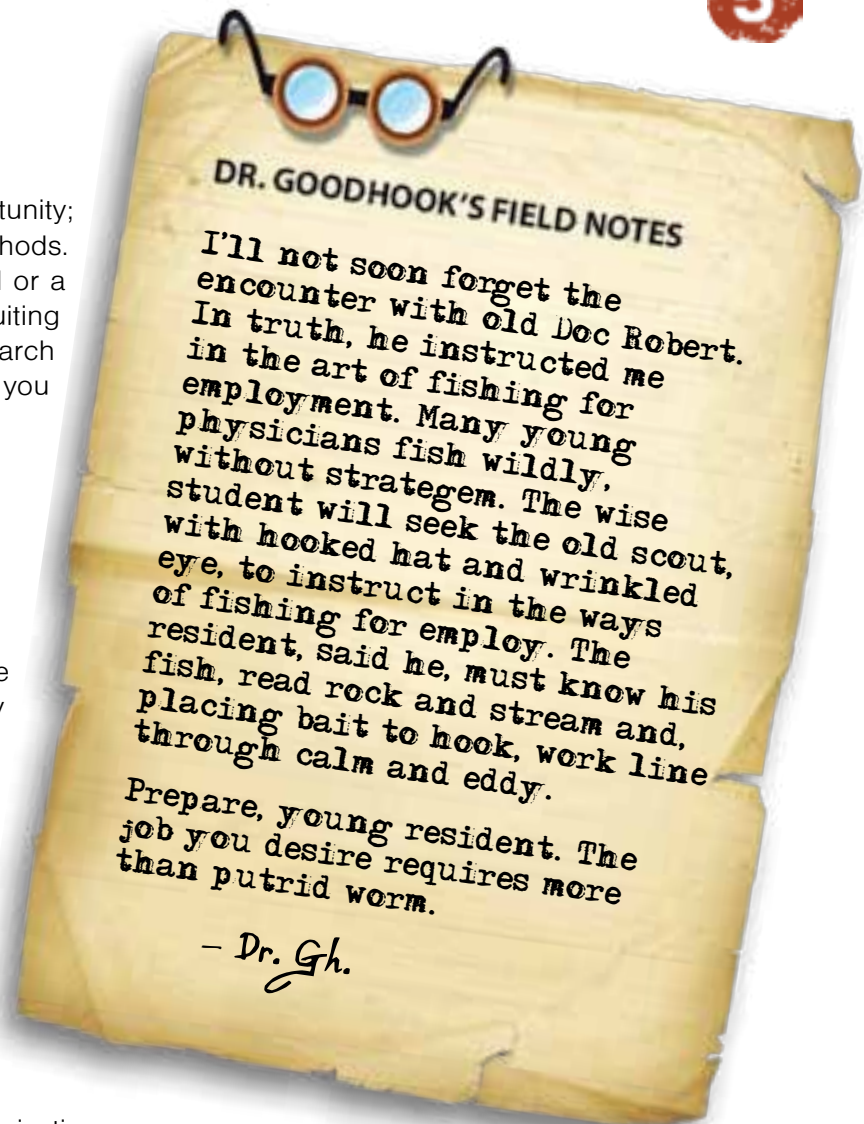 5
tunity;
hods.
l or a
uiting
arch
you
e
y
DR. GOODHOOK'S FIELD NOTES
I'll not soon forget the
encounter with old Doc Robert.
In truth, he instructed me
in the art of fishing for
employment. Many young
physicians fish wildly,
without strategem. The wise
student will seek the old scout,
with hooked hat and wrinkled
eye, to instruct in the ways
of fishing for employ. The
resident, said he, must know his
fish, read rock and stream and,
placing bait to hook, work line
through calm and eddy.
Prepare, young resident. The
job you desire requires more
than putrid worm.
– Dr. Gh.